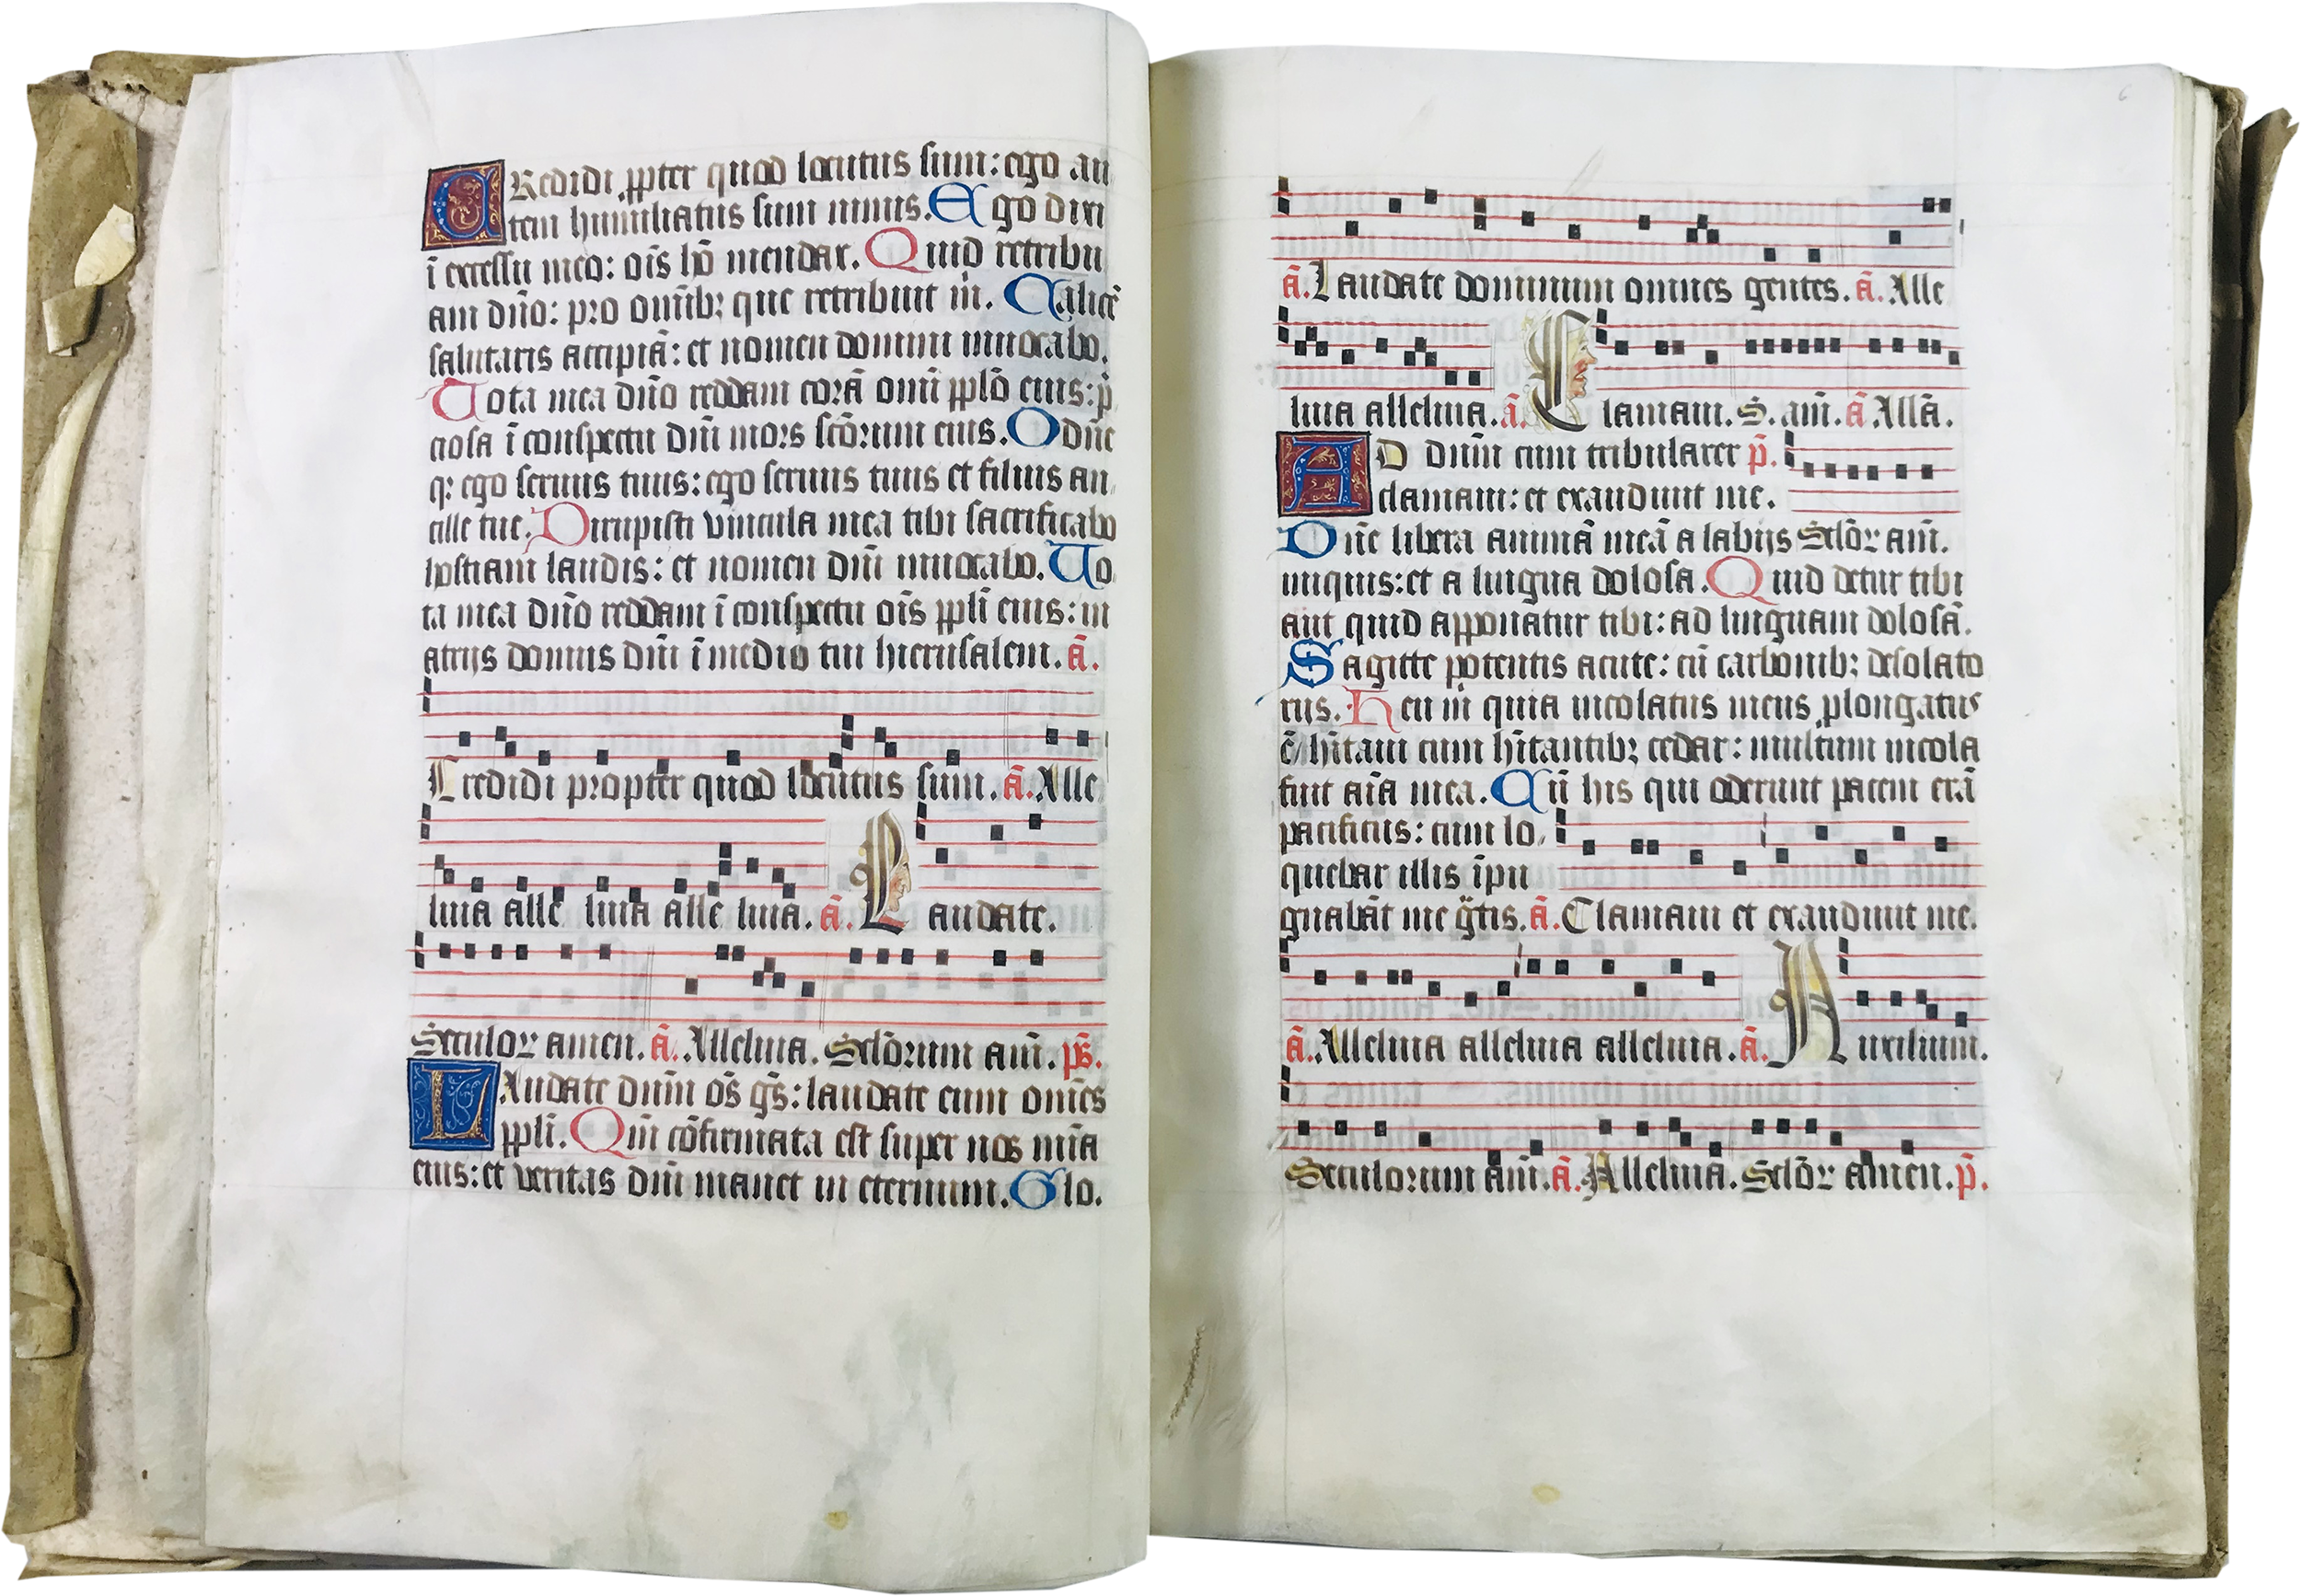 CRedidi ꝓpter quod locutus sum: ego au
tem humiliatus sum nimis. Ego dixi
ī excessu meo: oīs hō mendax. Quid retribu
am dn̄o: pro omīb; que retribuit m̄. Calicē
salutaris accipiā: et nomen domini inuocabo.
Uota mea dn̄o reddam corā omī pplō eius: p̄
ciosa ī conspectu dn̄i mors scōrum eius. O dn̄e
q: ego seruus tuus: ego seruus tuus et filius an
cille tue. Dirupisti vincula mea tibi sacrificabo
hostiam laudis: et nomen dn̄i inuocabo. Uo
ta mea dn̄o reddam ī conspectu oīs pplī eius: in
atrijs domus dn̄i ī medio tui hierusalem. ā.
Credidi propter quod locutus sum. ā. Alle
luia alle luia alle luia. ā. Laudate.
Seculoꝝ amen. ā. Alleluia. Sclōrum am̄. ps̄.
LAudate dn̄m os̄ gs̄: laudate eum omēs
pplī. Qm̄ cōfirmata est super nos mīa
eius: et veritas dn̄i manet in eternum. Glo.
6
ā. Laudate dominum omnes gentes. ā. Alle
luia alleluia. ā. Clamaui. S. am̄. ā Allā.
AD dn̄m cum tribularer p̄.
clamaui: et exaudiuit me.
Dn̄e libera animā meā a labijs Sclōꝝ am̄.
iniquis: et a lingua dolosa. Quid detur tibi
aut quid apponatur tibi: ad linguam dolosā.
Sagitte potentis acute: cū carbonib; desolato
rijs. Heu m̄ quia incolatus meus ꝓlongatus
ē / hītaui cum hītantib; cedar: multum incola
fuit aīa mea. Cū his qui oderunt pacem erā
pacificus: cum lo
quebar illis īpu
gnabāt me gr̄tis. ā. Clamaui et exaudiuit me.
ā. Alleluia alleluia alleluia. ā. Auxilium.
Seculorum am̄. ā. Alleluia. Sclōꝝ amen. p̄.